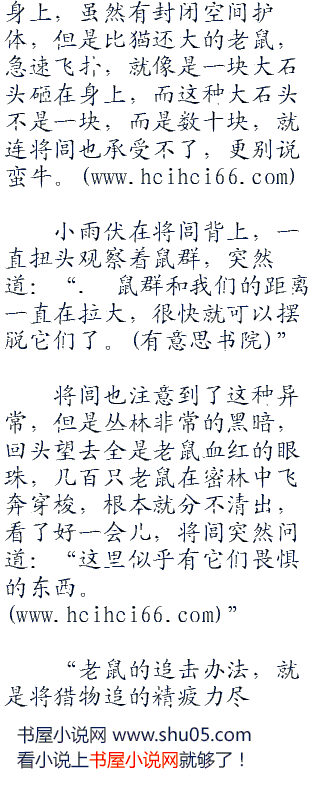 身上，虽然有封闭空间护
体，但是比猫还大的老鼠，
急速飞扑，就像是一块大石
头砸在身上，而这种大石头
不是一块，而是数十块，就
连将闾也承受不了，更别说
蛮牛。(www.hcihci66.com)
小雨伏在将闾背上，一
直扭头观察着鼠群，突然
道：“．　鼠群和我们的距离
一直在拉大，很快就可以摆
脱它们了。(有意思书院)”
将闾也注意到了这种异
常，但是丛林非常的黑暗，
回头望去全是老鼠血红的眼
珠，几百只老鼠在密林中飞
奔穿梭，根本就分不清出，
看了好一会儿，将闾突然问
道：“这里似乎有它们畏惧
的东西。
(www.hcihci66.com)”
“老鼠的追击办法，就
是将猎物追的精疲力尽
书屋小说网 www.shu05.com
看小说上书屋小说网就够了！